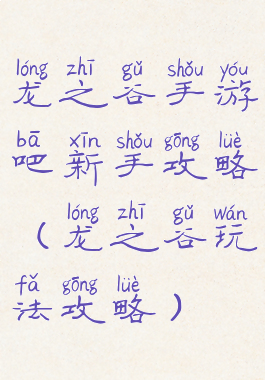 lóng zhī gǔ shǒu yóu
龙之谷手游
bā xīn shǒu gōng lüè
吧新手攻略
lóng zhī gǔ wán
（龙之谷玩
fǎ gōng lüè
法攻略）